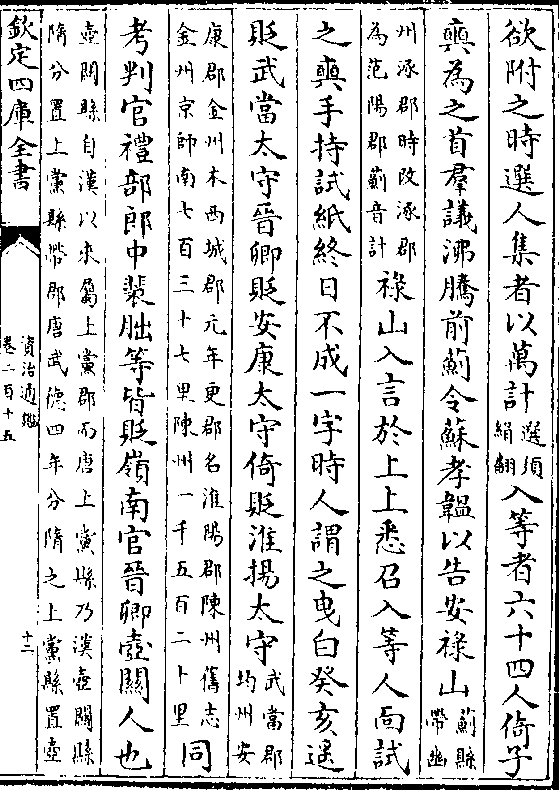 欲附之時選人集者以萬計選須絹翻入等者六十四人倚子
奭為之首羣議沸騰前薊令蘇孝韞以告安祿山薊縣帶幽
州涿郡時改涿郡為范陽郡薊音計祿山入言於上上悉召入等人面試
之奭手持試紙終日不成一字時人謂之曳白癸亥遥
貶武當太守晉卿貶安康太守倚貶淮揚太守武當郡均州安
康郡金州本西城郡元年更郡名淮陽郡陳州舊志金州京師南七百三十七里陳州一千五百二卜里同
考判官禮部郎中裴朏等皆貶嶺南官晉卿壺關人也
壺關縣自漢以來屬上黨郡而唐上黨縣乃漢壺關縣
隋分置上黨縣帶郡唐武德四年分隋之上黨縣置壺
欽定四庫全書
資治通鑑
卷二百十五
十二